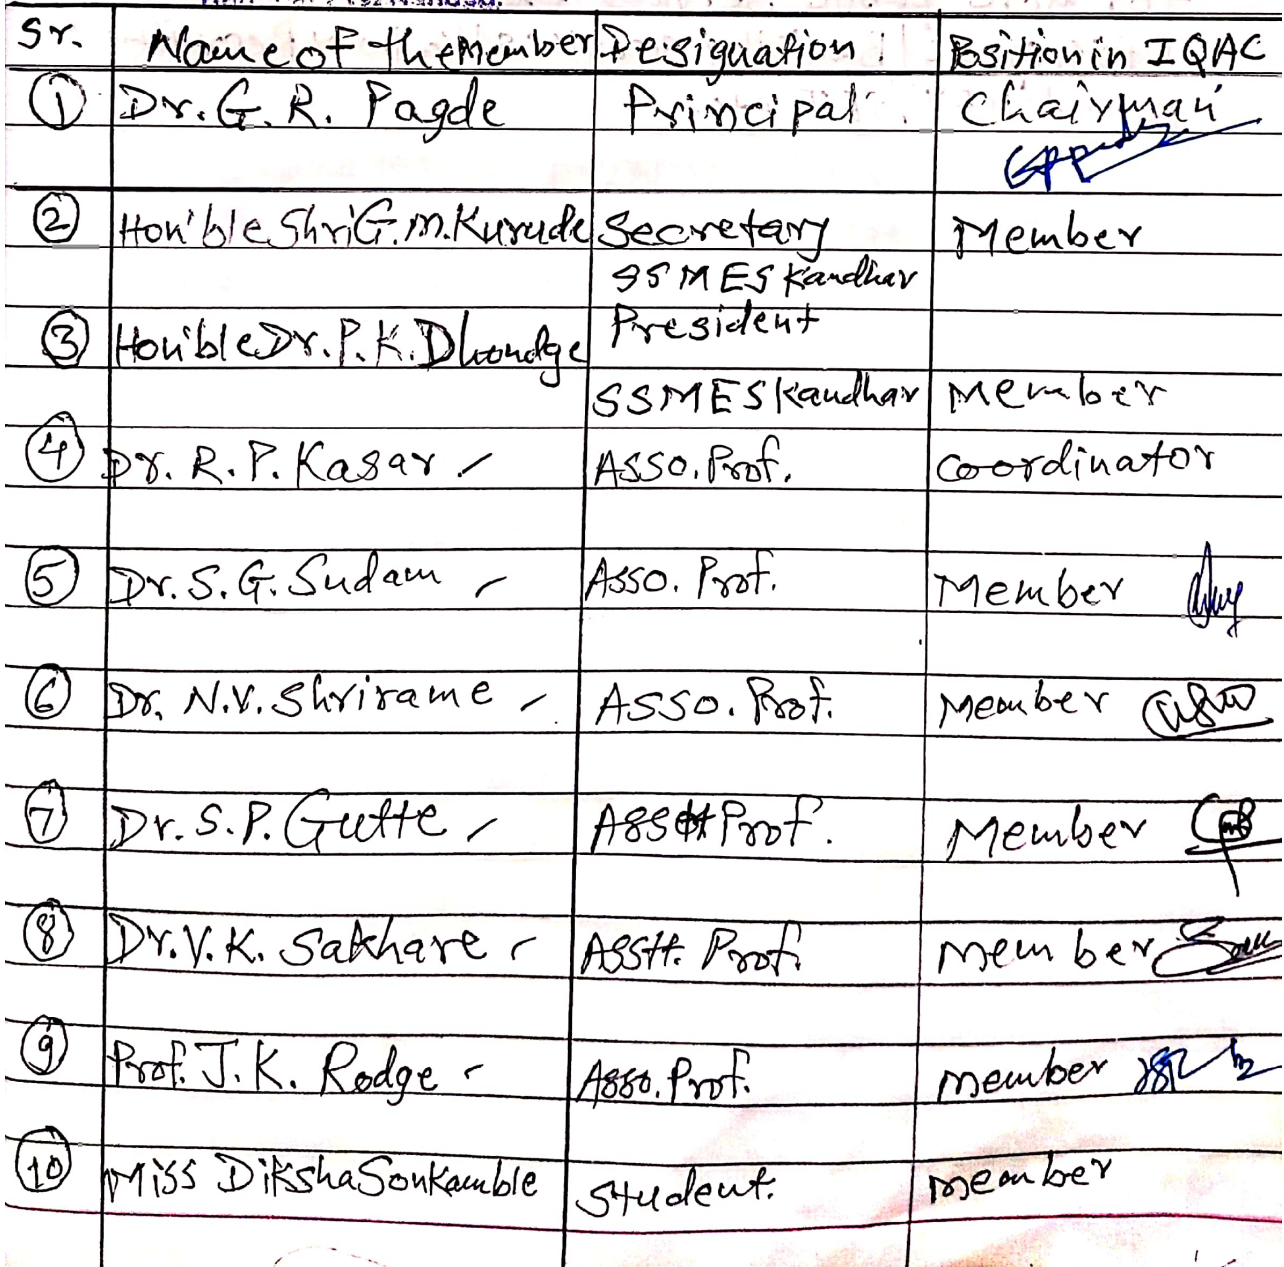 Sr. Name of the Member Designation Position in IQAC
1 Dr. G. R. Pagde Principal Chairman
2 Hon'ble Shri G. M. Kurude Secretary Member
SSMES Kandhar
3 Hon'ble Dr. P. K. Dhondge President
SSMES Kandhar Member
4 Dr. R. P. Kasar Asso. Prof. Coordinator
5 Dr. S. G. Sudam Asso. Prof. Member
6 Dr. N. V. Shrirame Asso. Prof. Member
7 Dr. S. P. Gutte Asstt Prof. Member
8 Dr. V. K. Sakhare Asstt. Prof. Member
9 Prof. J. K. Rodge Asso. Prof. member
10 Miss Diksha Sonkamble Student. member